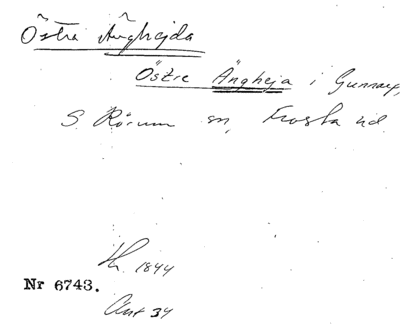 Östra Änghejda
Östre Ängheja i Gunnarp,
S. Rörum sn, Frosta hd
Lk. 1844
Nr 6743.
Akt 34